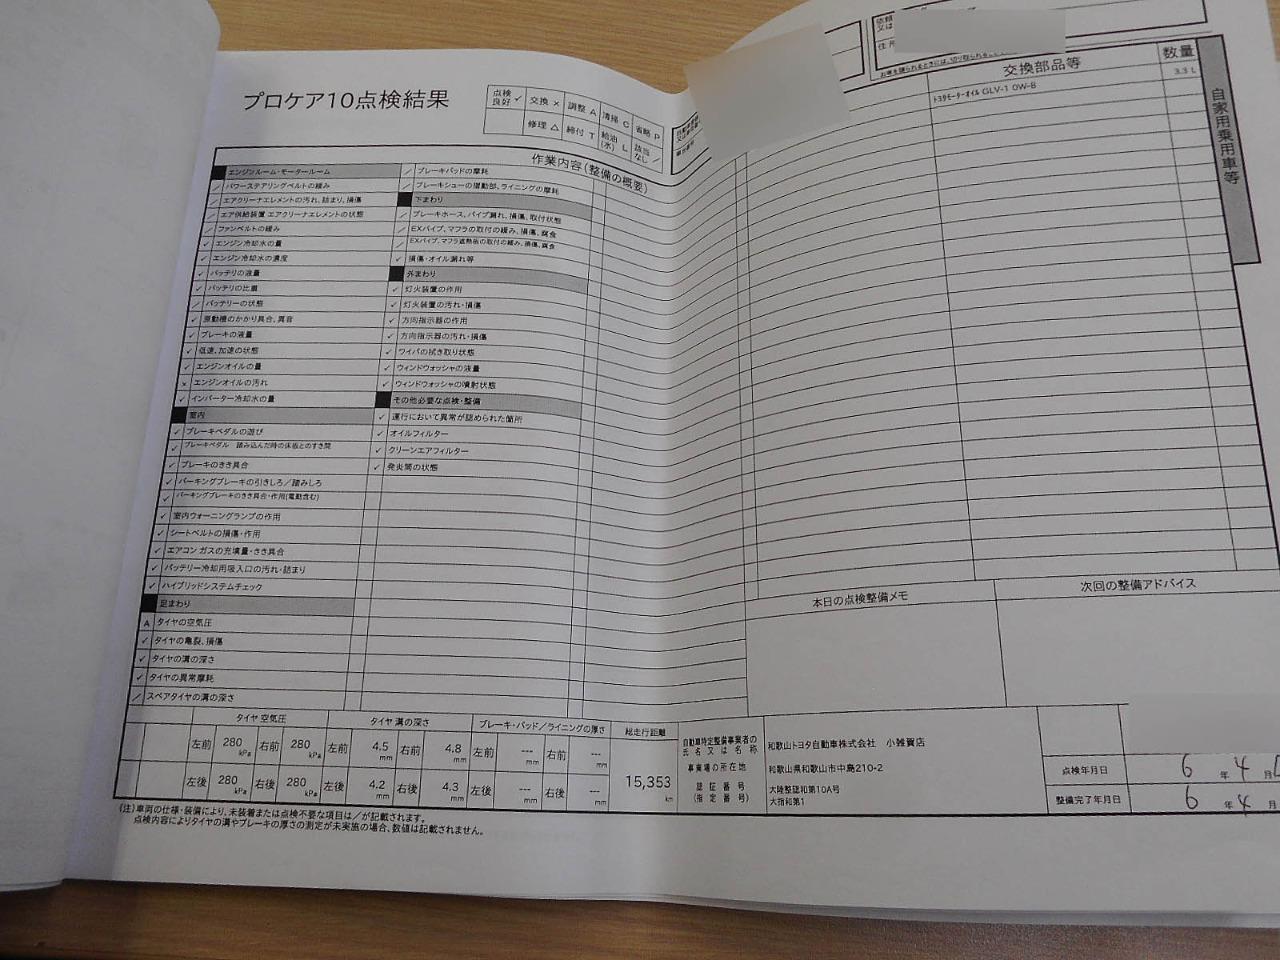 プロケア10点検結果
点検良好 ✓ 交換 × 調整 A 清掃 C 省略 P
修理 △ 締付 T 給油(水) L 該当なし ／
作業内容(整備の概要)
■ エンジンルーム・モータールーム
／ パワーステアリングベルトの緩み
／ エアクリーナエレメントの汚れ、詰まり、損傷
／ エア供給装置 エアクリーナエレメントの状態
／ ファンベルトの緩み
✓ エンジン冷却水の量
✓ エンジン冷却水の濃度
✓ バッテリの液量
✓ バッテリの比重
／ バッテリーの状態
✓ 原動機のかかり具合、異音
✓ ブレーキの液量
✓ 低速、加速の状態
✓ エンジンオイルの量
× エンジンオイルの汚れ
✓ インバーター冷却水の量
■ 室内
✓ ブレーキペダルの遊び
✓ ブレーキペダル 踏み込んだ時の床板とのすき間
✓ ブレーキのきき具合
✓ パーキングブレーキの引きしろ／踏みしろ
✓ パーキングブレーキのきき具合・作用(電動含む)
✓ 室内ウォーニングランプの作用
✓ シートベルトの損傷・作用
✓ エアコン ガスの充填量・きき具合
✓ バッテリー冷却用吸入口の汚れ・詰まり
✓ ハイブリッドシステムチェック
■ 足まわり
A タイヤの空気圧
✓ タイヤの亀裂、損傷
✓ タイヤの溝の深さ
✓ タイヤの異常摩耗
／ スペアタイヤの溝の深さ
／ ブレーキパッドの摩耗
／ ブレーキシューの摺動部、ライニングの摩耗
■ 下まわり
／ ブレーキホース、パイプ漏れ、損傷、取付状態
／ EXパイプ、マフラの取付の緩み、損傷、腐食
／ EXパイプ、マフラ遮熱板の取付の緩み、損傷、腐食
✓ 損傷・オイル漏れ等
■ 外まわり
✓ 灯火装置の作用
✓ 灯火装置の汚れ・損傷
✓ 方向指示器の作用
✓ 方向指示器の汚れ・損傷
✓ ワイパの拭き取り状態
✓ ウィンドウォッシャの液量
✓ ウィンドウォッシャの噴射状態
■ その他必要な点検・整備
✓ 運行において異常が認められた箇所
✓ オイルフィルター
✓ クリーンエアフィルター
✓ 発炎筒の状態
住所
交換部品等 数量
トヨタモーターオイル GLV-1 0W-8 3.3 L
自家用乗用車等
本日の点検整備メモ
次回の整備アドバイス
タイヤ 空気圧 タイヤ 溝の深さ ブレーキ・パッド／ライニングの厚さ 総走行距離
左前 280 kPa 右前 280 kPa 左前 4.5 mm 右前 4.8 mm 左前 --- mm 右前 --- mm
左後 280 kPa 右後 280 kPa 左後 4.2 mm 右後 4.3 mm 左後 --- mm 右後 --- mm
15,353 km
自動車特定整備事業者の氏名又は名称 和歌山トヨタ自動車株式会社 小雑賀店
事業場の所在地 和歌山県和歌山市中島210-2
認証番号 大陸整認和第10A号
(指定番号) 大指和第1
点検年月日 6 年 4 月
整備完了年月日 6 年 4 月
(注)車両の仕様・装備により、未装着または点検不要な項目は／が記載されます。
点検内容によりタイヤの溝やブレーキの厚さの測定が未実施の場合、数値は記載されません。